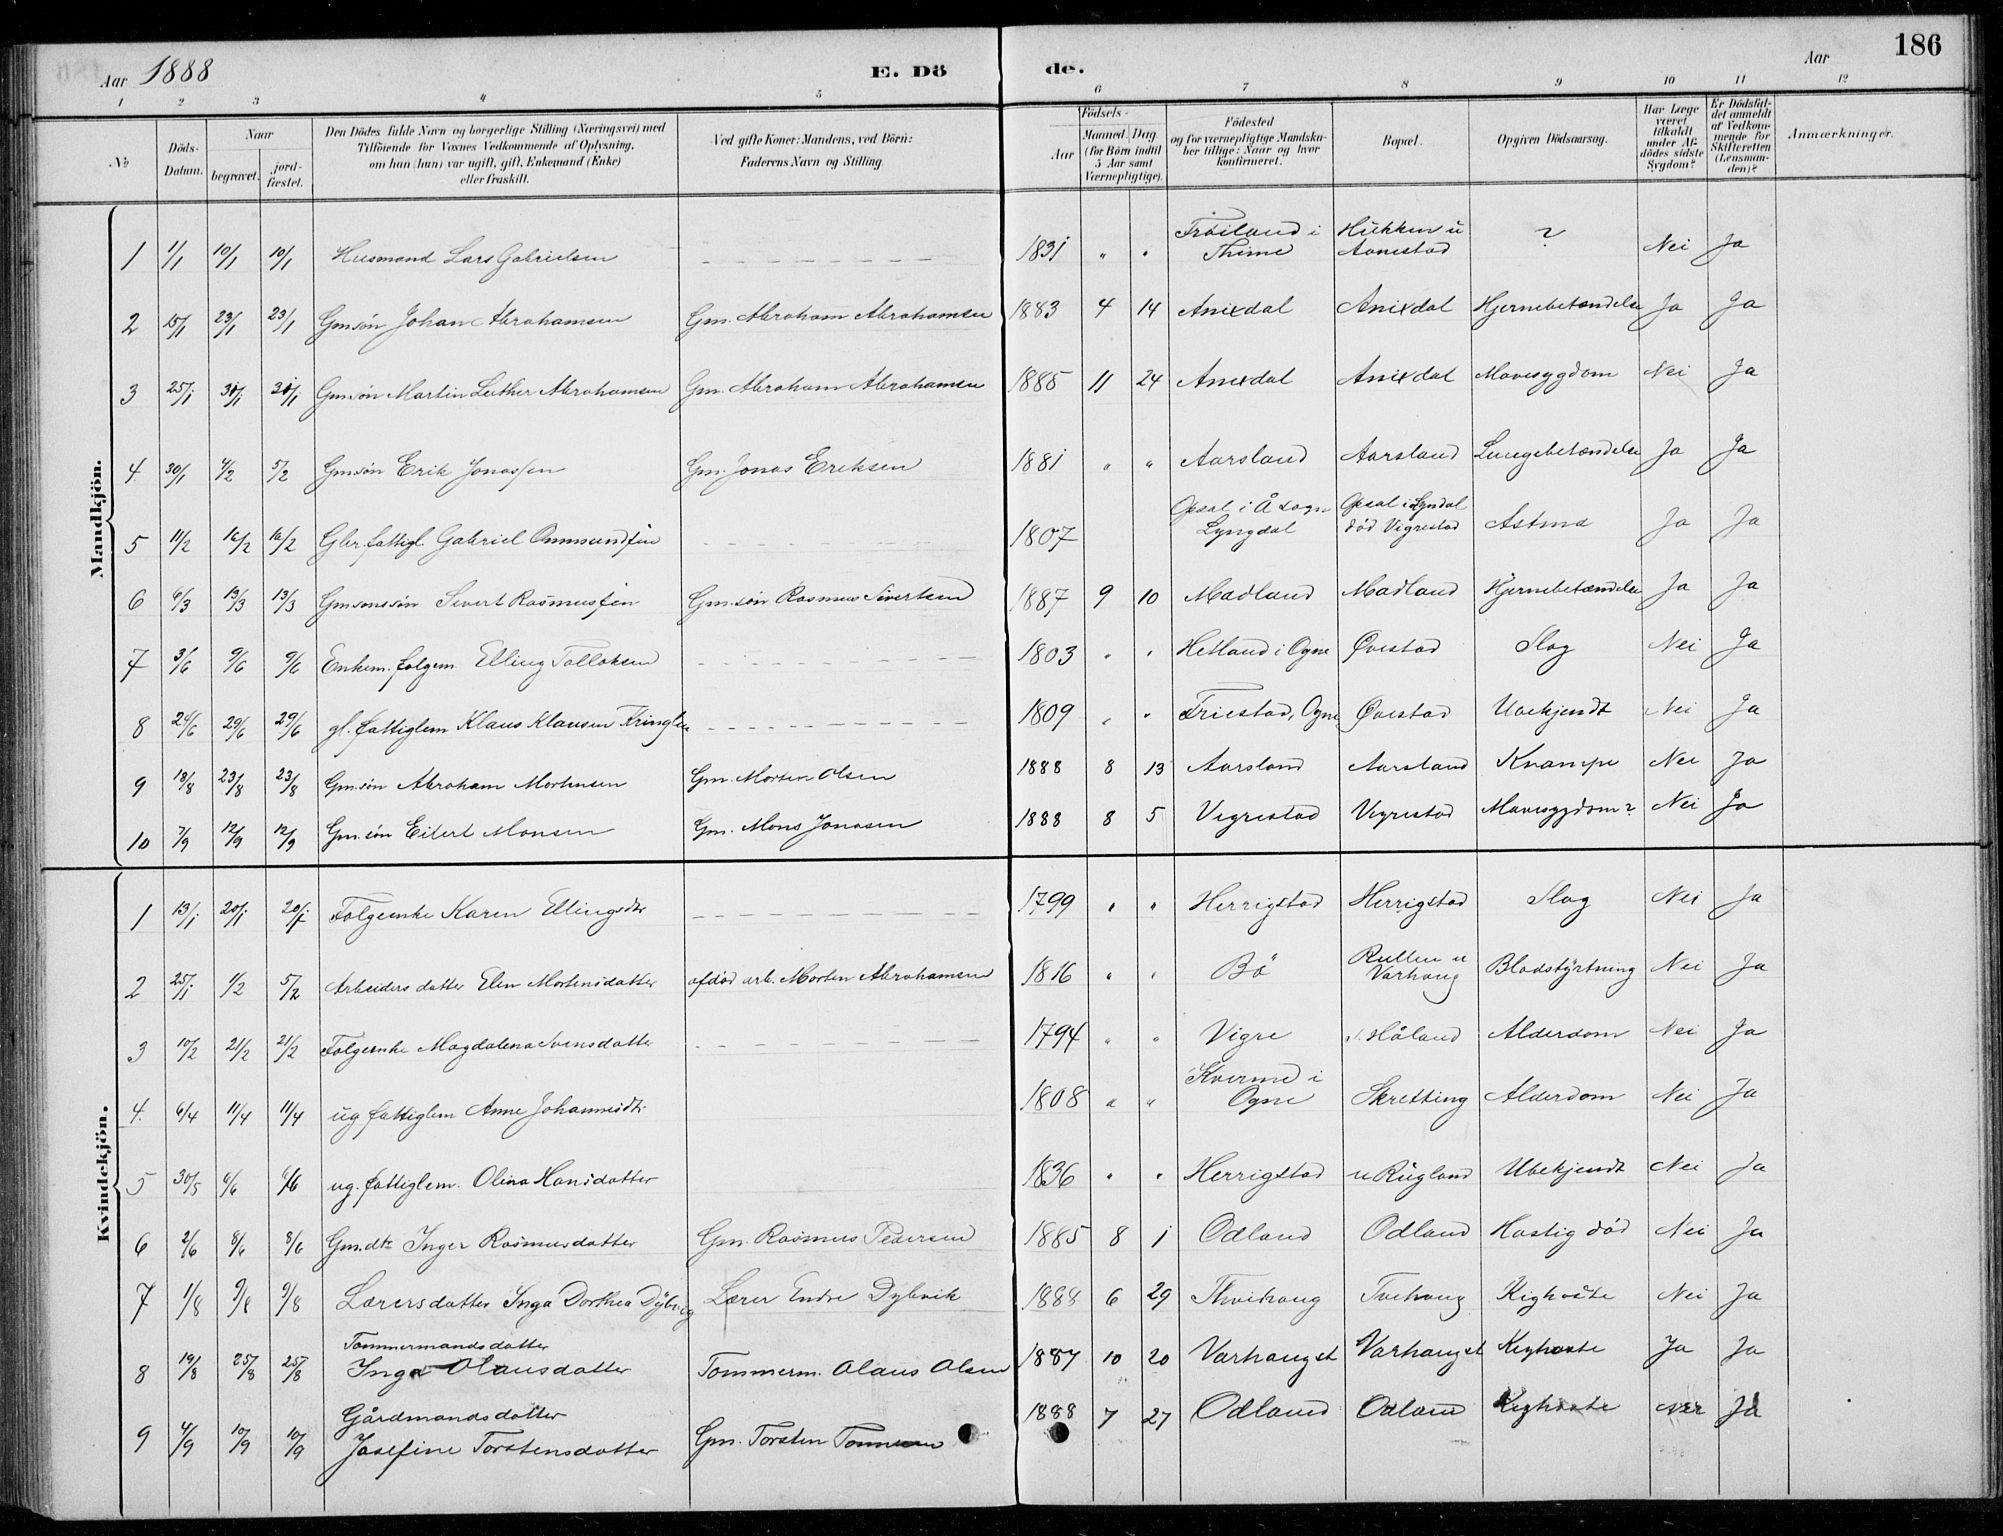 Aar 1888 E. Dö de. Aar 186
1 2 3 4 5 6 7 8 9 10 11 12
No
Döds-Datum.
Naar
begravet.
jord-fæstet.
Den Dödes fulde Navn og borgerlige Stilling (Næringsvei) med
Tilföiende for Voxnes Vedkommende af Oplysning,
om han (hun) var ugift, gift, Enkemand (Enke)
eller fraskilt.
Ved gifte Koner: Mandens, ved Börn:
Faderens Navn og Stilling.
Födsels-
Aar
Maaned. Dag.
(for Börn indtil
5 Aar samt
Værnepligtige).
Födested
og for værnepligtige Mandskaber tillige: Naar og hvor
konfirmeret.
Bopæl.
Opgiven Dödsaarsag.
Har Læge
været
tilkaldt
under Afdödes sidste
Sygdom?
Er Dödsfaldet anmeldt
af Vedkommende for
Skifteretten
(Lensmanden)?
Anmærkninger.
Mandkjön.
1 1/1 10/1 10/1 Husmand Lars Gabrielsen 1831 " " Fröiland i Thime Hükken u Aanestad ? Nei Ja
2 15/1 23/1 23/1 Gmsøn Johan Abrahamsen Gm. Abraham Abrahamsen 1883 4 14 Anixdal Anixdal Hjernebetændelse Ja Ja
3 25/1 30/1 30/1 Gmsøn Martin Luther Abrahamsen Gm. Abraham Abrahamsen 1885 11 24 Anixdal Anixdal Mavesygdom Nei Ja
4 30/1 4/2 5/2 Gmsøn Erik Jonassen Gm. Jonas Eriksen 1881 " " Aarsland Aarsland Lungebetændelse Ja Ja
5 11/2 16/2 16/2 Gbr. fattigl. Gabriel Ommundsen 1807 Opsal i Å sogn Lyngdal Opsal i Lyndal død Vigrestad Astma Ja Ja
6 6/3 13/3 13/3 Gmsonssön Sivert Rasmussen Gm.søn Rasmus Sivertsen 1887 9 10 Madland Madland Hjernebetændelse Ja Ja
7 3/6 9/6 9/6 Enkem. folgem. Elling Tolloksen 1803 " " Hetland i Ogne Øvestad Slag Nei Ja
8 24/6 29/6 29/6 gl. fattiglem Klaus Klausen Kringlen 1809 " " Friestad, Ogne Øvestad Ubekjendt Nei Ja
9 18/8 23/8 23/8 Gmsøn Abraham Mortensen Gm. Morten Olsen 1888 8 13 Aarsland Aarsland Krampe Nei Ja
10 7/9 12/9 12/9 Gm.søn Eilert Monsen Gm. Mons Jonasen 1888 8 5 Vigrestad Vigrestad Mavesygdom? Nei Ja
Kvindekjön.
1 13/1 20/1 20/1 Folgeenke Karen Ellingsdtr 1799 " " Herrigstad Herrigstad Slag Nei Ja
2 25/1 1/2 5/2 Arbeiders datter Elen Mortensdatter afdød arb. Morten Abrahamsen 1816 " " Bö Rullen u Varhaug Blodstyrtning Nei Ja
3 10/2 21/2 21/2 Folgeenke Magdalena Svensdatter 1794 " " Vigre Håland Alderdom Nei Ja
4. 6/4 11/4 11/4 ug fattiglem Anne Johannesdtr 1808 " " Kverme i Ogne Skretting Alderdom Nei Ja
5 30/5 6/6 6/6 ug. fattiglem. Olina Hansdatter 1836 " " Herrigstad u Rügland Ubekjendt Nei Ja
6 2/6 8/6 8/6 Gm.dtr Inger Rasmusdatter Gm. Rasmus Pedersen 1885 8 1 Odland Odland Hastig död Nei Ja
7 1/8 9/8 9/8 Lærersdatter Inga Dorthea Dybvig Lærer Endre Dybvik 1888 6 29 Thvihaug Tvihaug Kighoste Nei Ja
8 19/8 25/8 25/8 Tommermandsdatter Inga Olausdatter Tommerm. Olaus Olsen 1887 10 20 Varhaugst Varhaugst Kighoste Ja Ja
9 4/9 10/9 10/9 Gårdmandsdatter Josefine Torstensdatter Gm. Torsten Tonnesen 1888 7 27 Odland Odland Kighoste Nei Ja